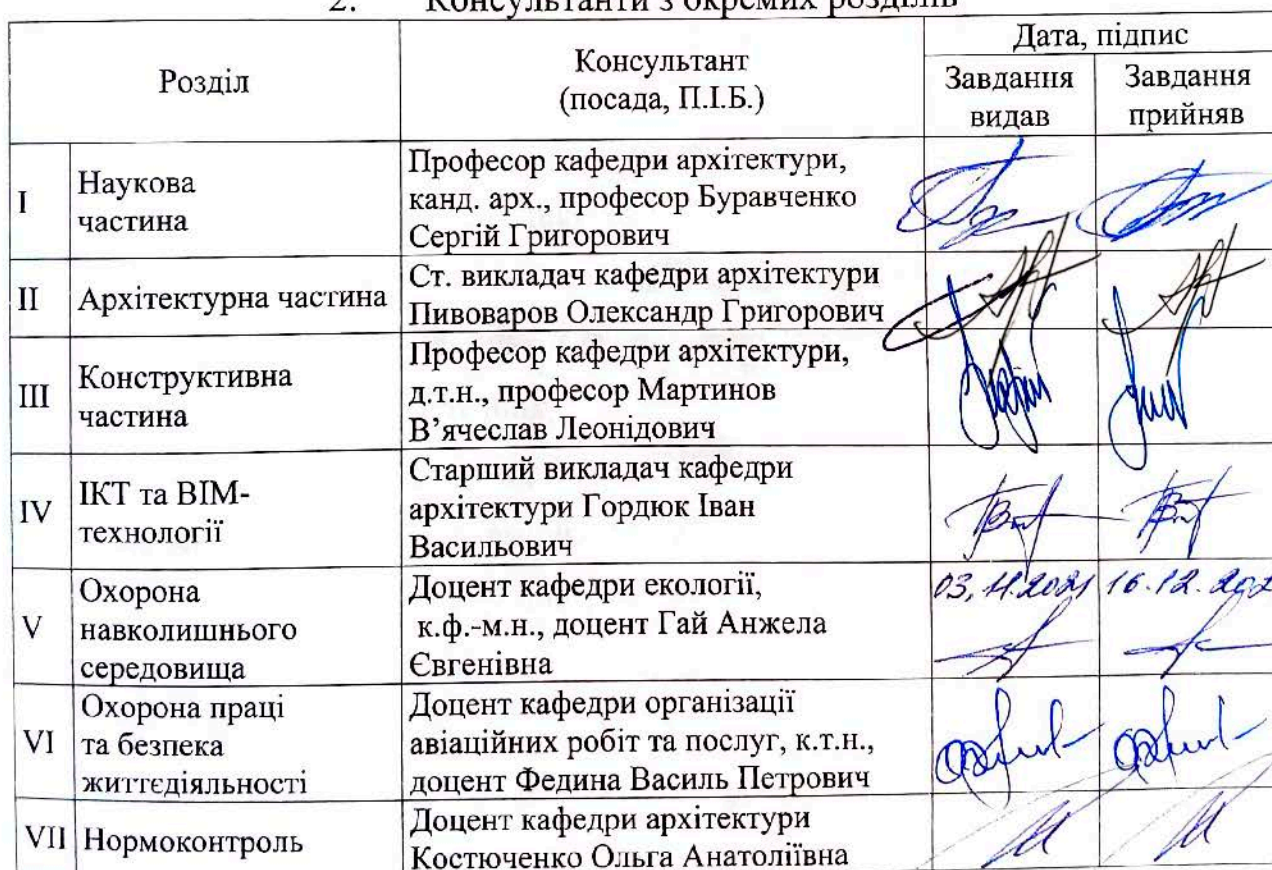 2. Консультанти з окремих розділів
Розділ
Консультант
(посада, П.І.Б.)
Дата, підпис
Завдання
видав
Завдання
прийняв
I
Наукова
частина
Професор кафедри архітектури,
канд. арх., професор Буравченко
Сергій Григорович
II
Архітектурна частина
Ст. викладач кафедри архітектури
Пивоваров Олександр Григорович
III
Конструктивна
частина
Професор кафедри архітектури,
д.т.н., професор Мартинов
В’ячеслав Леонідович
IV
ІКТ та BIM-
технології
Старший викладач кафедри
архітектури Гордюк Іван
Васильович
V
Охорона
навколишнього
середовища
Доцент кафедри екології,
к.ф.-м.н., доцент Гай Анжела
Євгенівна
03.11.2021
16.12.202
VI
Охорона праці
та безпека
життєдіяльності
Доцент кафедри організації
авіаційних робіт та послуг, к.т.н.,
доцент Федина Василь Петрович
VII
Нормоконтроль
Доцент кафедри архітектури
Костюченко Ольга Анатоліївна